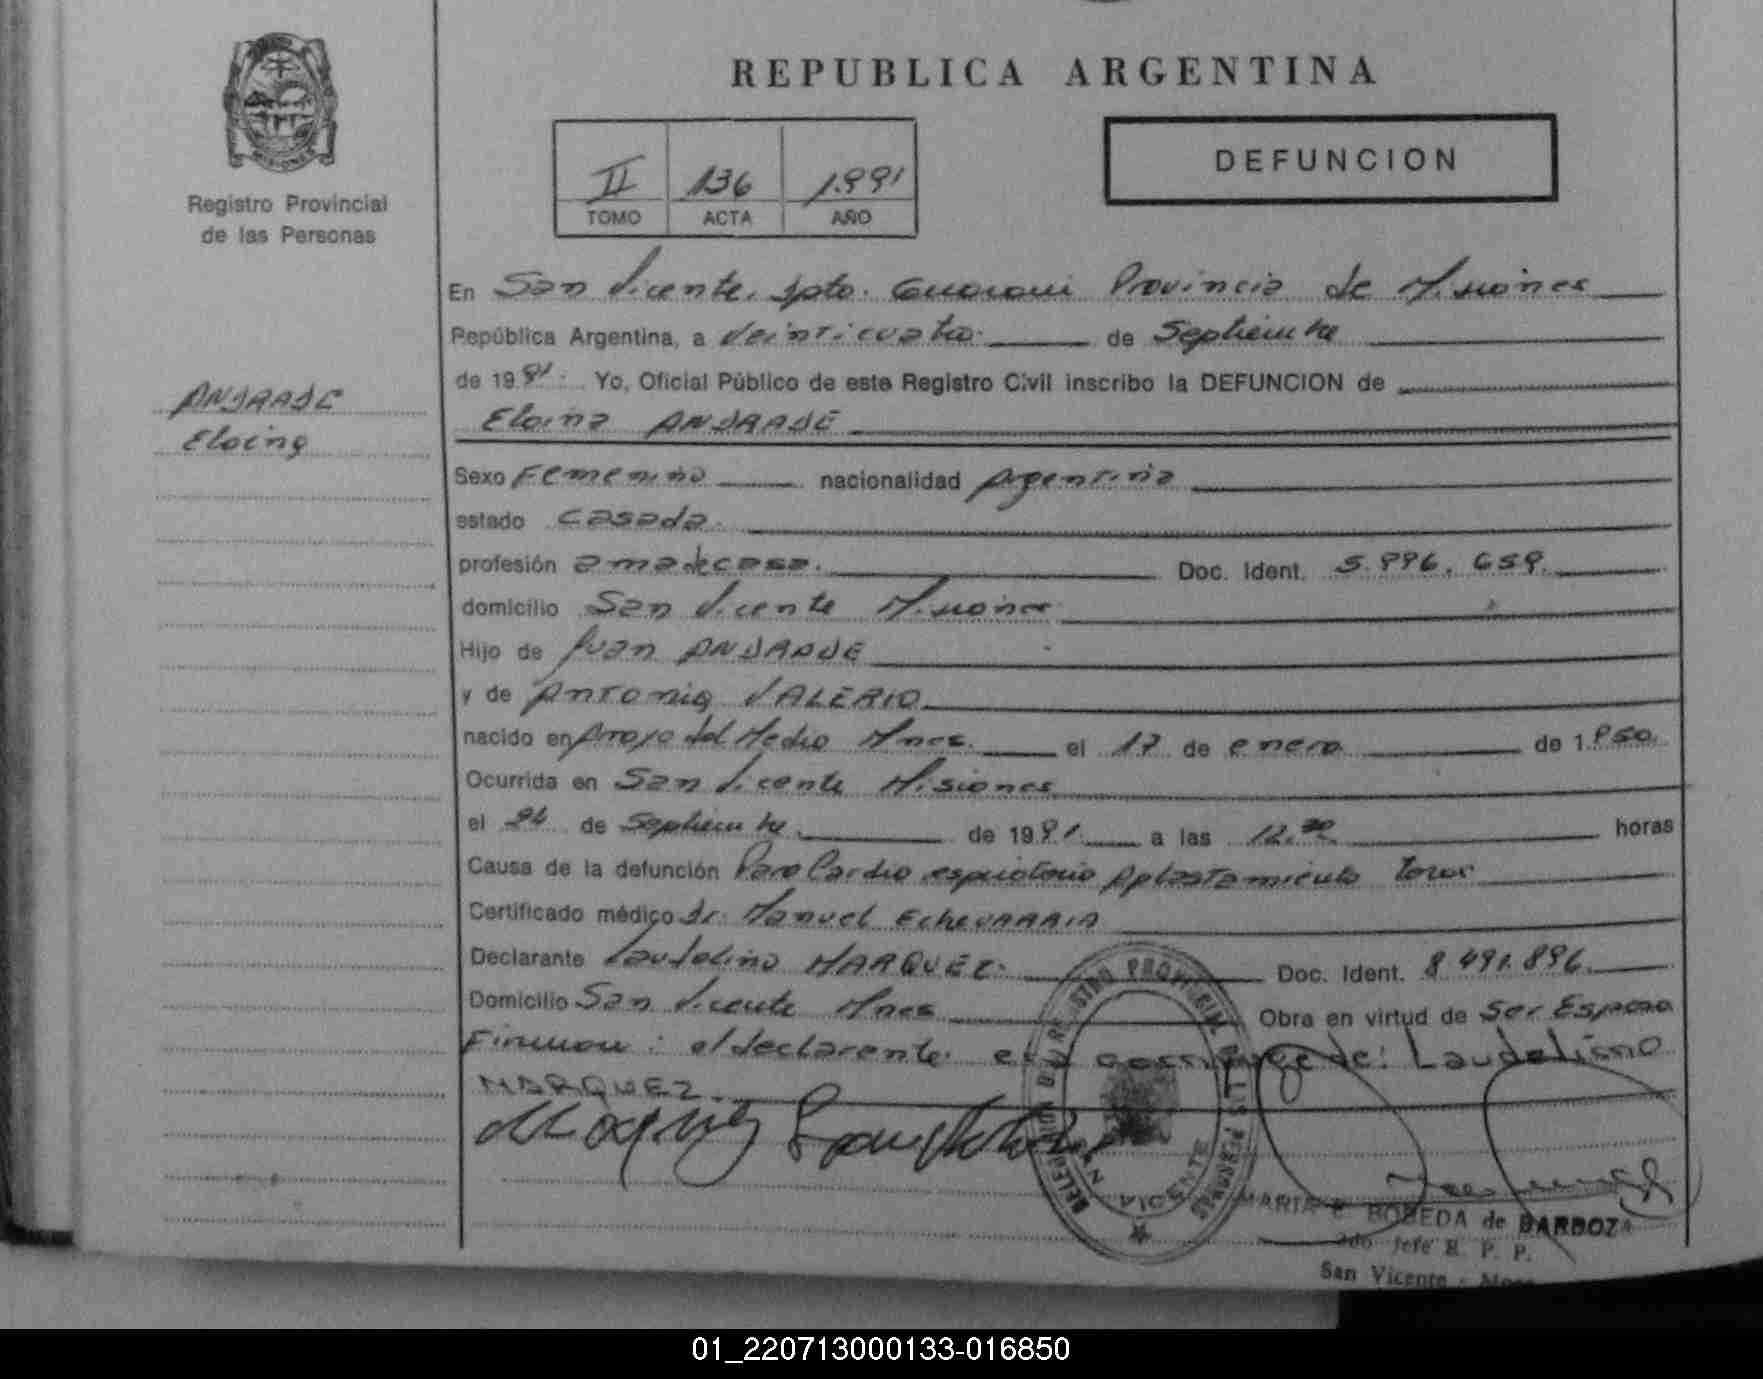 REPUBLICA ARGENTINA
MISIONES
Registro Provincial
de las Personas
II 136 1.991
TOMO ACTA AÑO
DEFUNCION
En San Vicente. Dpto. Guarani Provincia de Misiones
República Argentina, a veinticuatro de Septiembre
de 1991. Yo, Oficial Público de este Registro Civil inscribo la DEFUNCION de
Eloina ANDRADE
ANDRADE
Eloina
Sexo Femenino nacionalidad Argentina
estado casada.
profesión ama de casa. Doc. Ident. 5.996.659.
domicilio San Vicente Misiones
Hijo de Juan ANDRADE
y de Antonia VALERIO
nacido en Arroyo del Medio Mnes. el 17 de enero de 1.950.
Ocurrida en San Vicente Misiones
el 24 de Septiembre. de 1991. a las 12.30 horas
Causa de la defunción Paro Cardio respiratorio Aplastamiento torax
Certificado médico Dr. Manuel EcheVARRIA
Declarante Laudelino MARQUEZ. Doc. Ident. 8.491.896.
Domicilio San Vicente Mnes Obra en virtud de Ser Esposo
Firman: el declarante. es conyuge de: Laudelino
MARQUEZ.
DELEGACION DEL REGISTRO PROVINCIAL DE LAS PERSONAS
SAN VICENTE
MARIA E. BOBEDA de BARBOZA
2do Jefe R. P. P.
San Vicente - Mnes
01_220713000133-016850